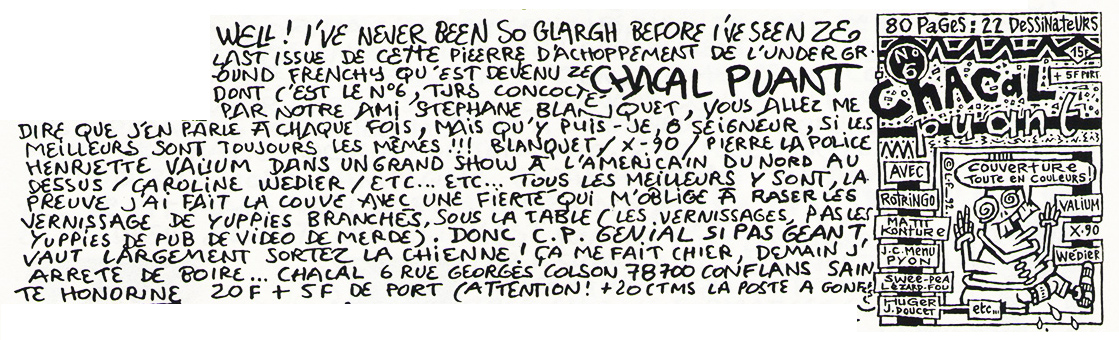 WELL! I'VE NEVER BEEN SO GLARGH BEFORE I'VE SEEN ZE
LAST ISSUE DE CETTE PIEERRE D'ACHOPPEMENT DE L'UNDERGR-
OUND FRENCHY QU'EST DEVENU ZE CHACAL PUANT
DONT C'EST LE N°6, TJRS CONCOCTE
PAR NOTRE AMI STEPHANE BLANQUET, VOUS ALLEZ ME
DIRE QUE J'EN PARLE A CHAQUE FOIS, MAIS QU'Y PUIS-JE, Ô SEIGNEUR, SI LES
MEILLEURS SONT TOUJOURS LES MÊMES!!! BLANQUET/X-90/PIERRE LA POLICE
HENRIETTE VALIUM DANS UN GRAND SHOW A L'AMERICAIN DU NORD AU
DESSUS/CAROLINE WEDIER/ETC... ETC... TOUS LES MEILLEURS Y SONT, LA
PREUVE J'AI FAIT LA COUVE AVEC UNE FIERTE QUI M'OBLIGE A RASER LES
VERNISSAGE DE YUPPIES BRANCHES, SOUS LA TABLE (LES VERNISSAGES, PAS LES
YUPPIES DE PUB DE VIDEO DE MERDE). DONC C.P. GENIAL SI PAS GEANT,
VAUT LARGEMENT SORTEZ LA CHIENNE! ÇA ME FAIT CHIER, DEMAIN J'
ARRETE DE BOIRE... CHACAL 6 RUE GEORGES COLSON 78700 CONFLANS SAIN
TE HONORINE 20F + 5F DE PORT (ATTENTION! +20CTMS LA POSTE A GONFL
80 PAGES: 22 DESSINATEURS
N°6
15F
+ 5F PORT
CHACAL
puant
AVEC
ROTRINGO
MATTT KONTURE
J.C. MENU
PYON
SWEET PEA
LÉZARD-FOU
HUGER
J. DOUCET
etc...
COUVERTURE
TOUTE EN COULEURS!
VALIUM
X-90
WEDIER